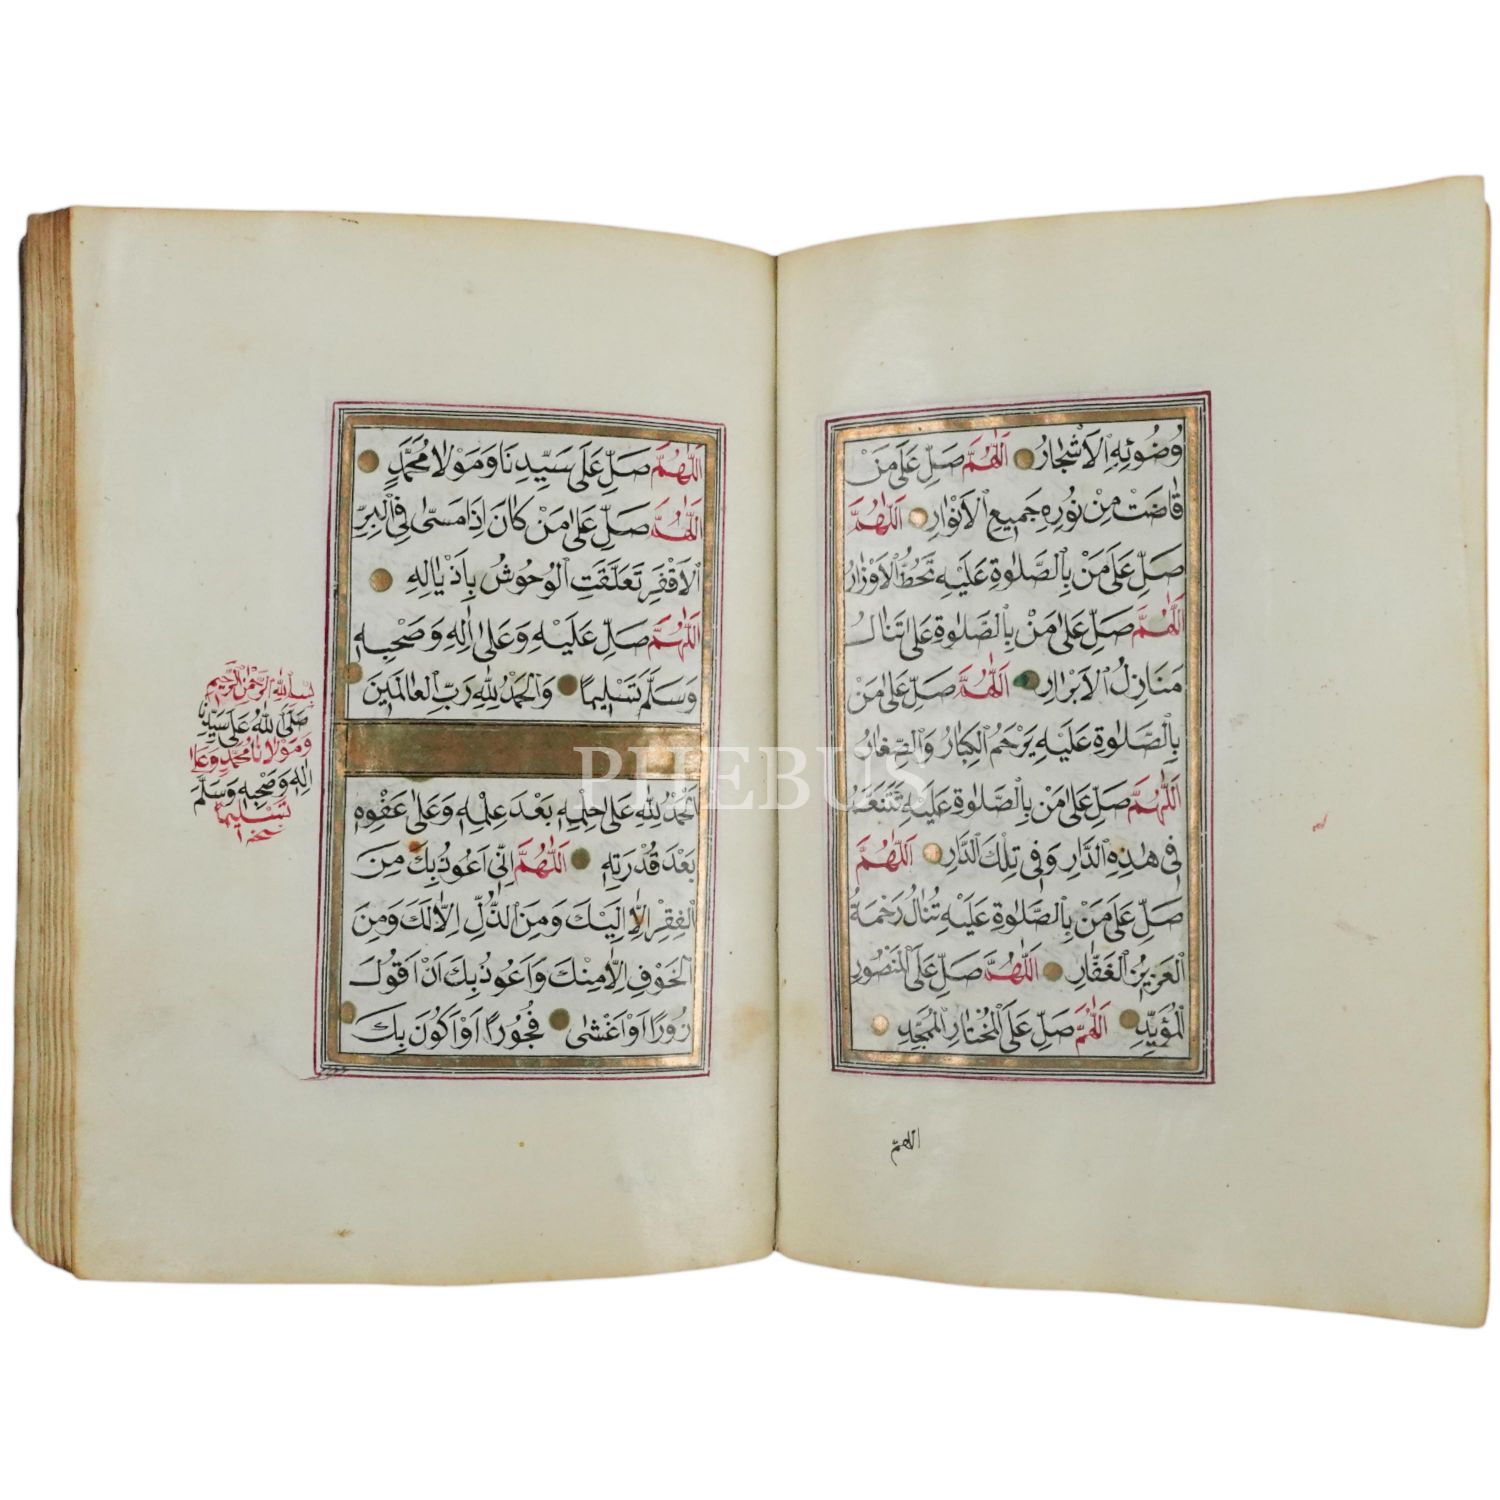 وُضُوئِهِ الْاَشْجَارُ اَللّٰهُمَّ صَلِّ عَلٰى مَنْ
فَاضَتْ مِنْ نُورِهِ جَمِيعُ الْاَنْوَارِ اَللّٰهُمَّ
صَلِّ عَلٰى مَنْ بِالصَّلٰوةِ عَلَيْهِ تُحَطُّ الْاَوْزَارُ
اَللّٰهُمَّ صَلِّ عَلٰى مَنْ بِالصَّلٰوةِ عَلَيْهِ تُنَالُ
مَنَازِلُ الْاَبْرَارِ اَللّٰهُمَّ صَلِّ عَلٰى مَنْ
بِالصَّلٰوةِ عَلَيْهِ يُرْحَمُ الْكِبَارُ وَالصِّغَارُ
اَللّٰهُمَّ صَلِّ عَلٰى مَنْ بِالصَّلٰوةِ عَلَيْهِ نَتَنَعَّمُ
فِى هٰذِهِ الدَّارِ وَفِى تِلْكَ الدَّارِ اَللّٰهُمَّ
صَلِّ عَلٰى مَنْ بِالصَّلٰوةِ عَلَيْهِ تُنَالُ رَحْمَةُ
الْعَزِيزِ الْغَفَّارِ اَللّٰهُمَّ صَلِّ عَلَى الْمَنْصُورِ
الْمُؤَيَّدِ اَللّٰهُمَّ صَلِّ عَلَى الْمُخْتَارِ الْمُمَجَّدِ
اللهمّ
اَللّٰهُمَّ صَلِّ عَلٰى سَيِّدِنَا وَمَوْلَانَا مُحَمَّدٍ
اَللّٰهُمَّ صَلِّ عَلٰى مَنْ كَانَ اِذَا مَشٰى فِى الْبَرِّ
الْاَقْفَرِ تَعَلَّقَتِ الْوُحُوشُ بِاَذْيَالِهِ
اَللّٰهُمَّ صَلِّ عَلَيْهِ وَعَلٰى اٰلِهِ وَصَحْبِهِ
وَسَلِّمْ تَسْلِيمًا وَالْحَمْدُ لِلّٰهِ رَبِّ الْعَالَمِينَ
اَلْحَمْدُ لِلّٰهِ عَلٰى حِلْمِهِ بَعْدَ عِلْمِهِ وَعَلٰى عَفْوِهِ
بَعْدَ قُدْرَتِهِ اَللّٰهُمَّ اِنِّى اَعُوذُ بِكَ مِنَ
الْفَقْرِ اِلَّا اِلَيْكَ وَمِنَ الذُّلِّ اِلَّا لَكَ وَمِنَ
الْخَوْفِ اِلَّا مِنْكَ وَاَعُوذُ بِكَ اَنْ اَقُولَ
زُورًا اَوْ اَغْشٰى فُجُورًا اَوْ اَكُونَ بِكَ
بِسْمِ اللّٰهِ الرَّحْمٰنِ الرَّحِيمِ
صَلَّى اللّٰهُ عَلٰى سَيِّدِنَا
وَمَوْلَانَا مُحَمَّدٍ وَعَلٰى
اٰلِهِ وَصَحْبِهِ وَسَلَّمَ
تَسْلِيمًا
PHEBUS